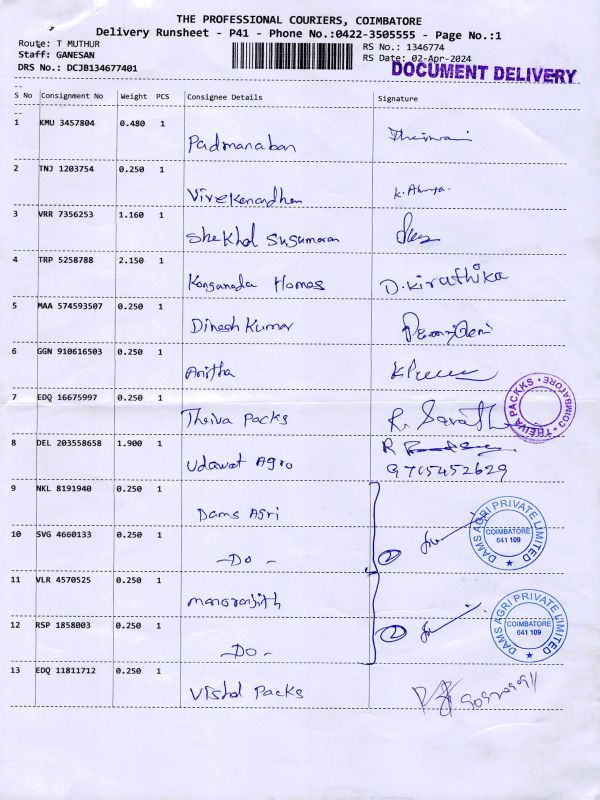 THE PROFESSIONAL COURIERS, COIMBATORE
Delivery Runsheet - P41 - Phone No.:0422-3505555 - Page No.:1
Route: T MUTHUR RS No.: 1346774
Staff: GANESAN RS Date: 02-Apr-2024
DRS No.: DCJB134677401 DOCUMENT DELIVERY
S No Consignment No Weight PCS Consignee Details Signature
1 KMU 3457804 0.480 1
Padmanaban
2 TNJ 1203754 0.250 1
Vivekanandhan
3 VRR 7356253 1.160 1
Shekhal Susumaran
4 TRP 5258788 2.150 1
Konganada Homes D. Kirathika
5 MAA 574593507 0.250 1
Dinesh Kumar
6 GGN 910616503 0.250 1
Anitha
7 EDQ 16675997 0.250 1
Theiva Packs R. Sarath
THEIVA PACKKS COIMBATORE
8 DEL 203558658 1.900 1
Udawat Agro 9715452629
9 NKL 8191940 0.250 1
Dams Agri
10 SVG 4660133 0.250 1
-Do- 2
DAMS AGRI PRIVATE LIMITED
COIMBATORE
641 109
11 VLR 4570525 0.250 1
Manoranjith
12 RSP 1858003 0.250 1
-Do- 2
DAMS AGRI PRIVATE LIMITED
COIMBATORE
641 109
13 EDQ 11811712 0.250 1
Vishal Packs